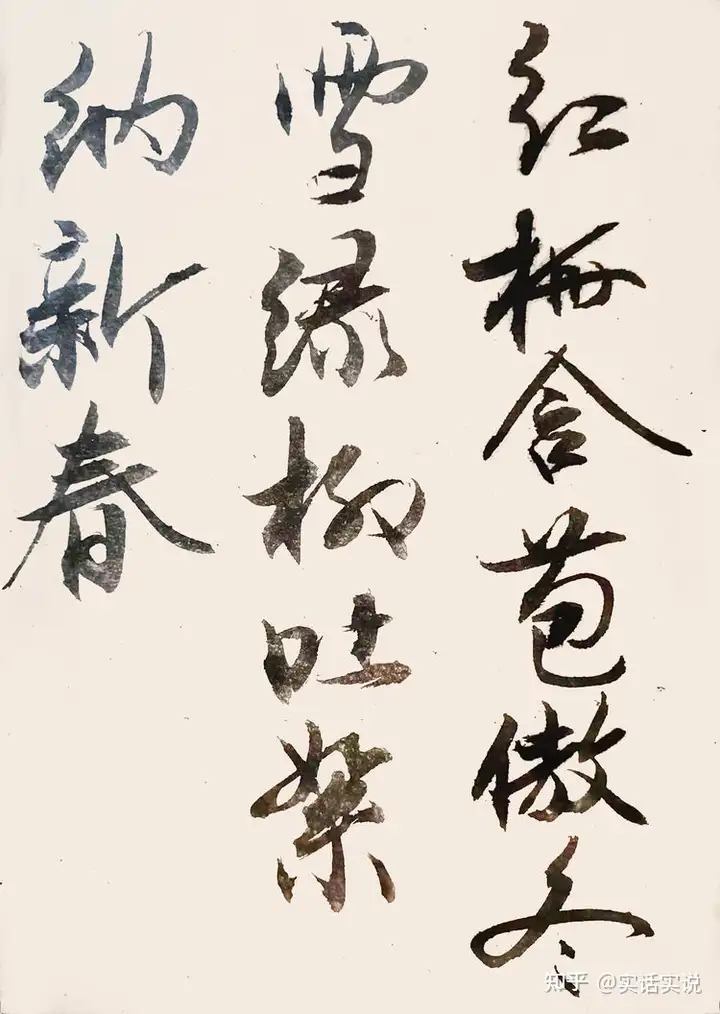 红梅含苞傲冬
雪绿柳吐絮
纳新春
知乎 @实话实说